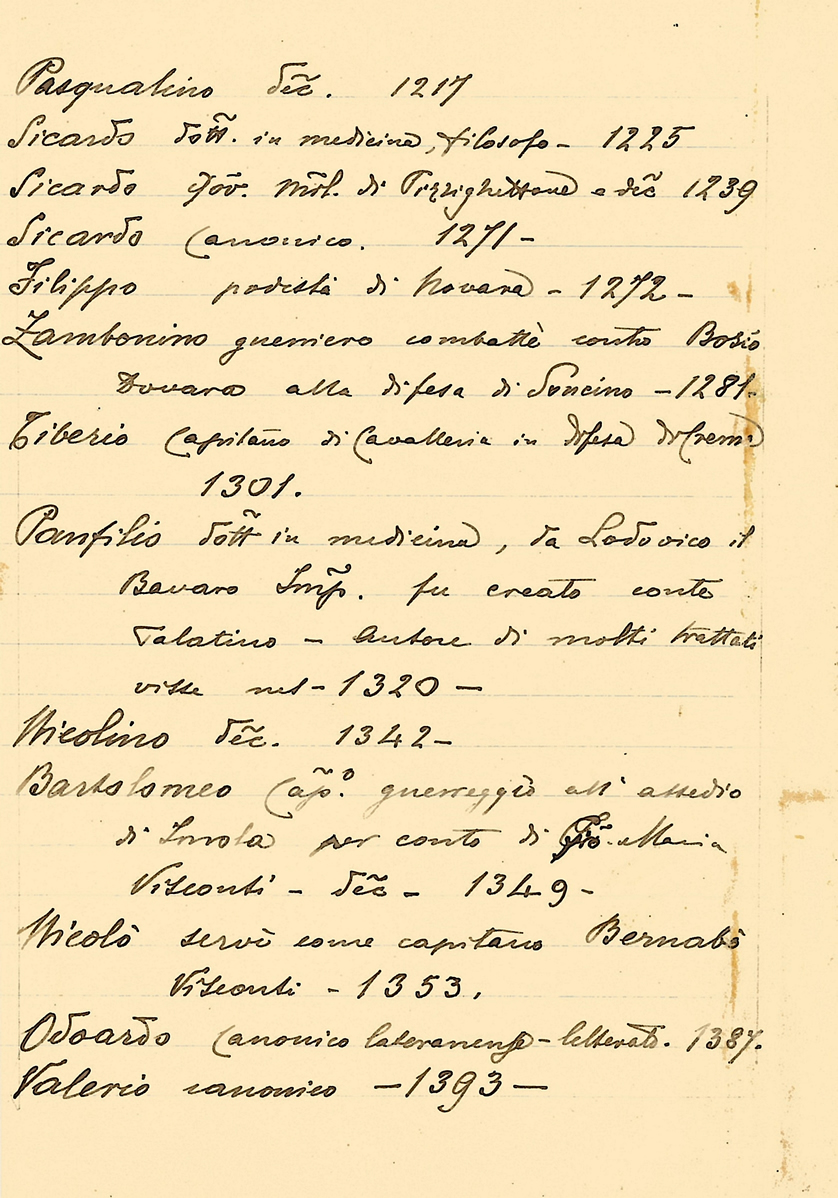 Pasqualino dec̃. 1217
Sicardo dott̃. in medicina, filosofo - 1225
Sicardo Gov. Mil. di Pizzighettone e dec̃ 1239
Sicardo Canonico. 1271 -
Filippo podestà di Novara - 1272 -
Zambonino guerriero combattè contro Bosio
Dovara alla difesa di Soncino - 1281.
Tiberio Capitano di Cavalleria in difesa di Crema
1301.
Panfilio dott̃ in medicina, da Lodovico il
Bavaro Imp̃. fu creato conte
Palatino - Autore di molti trattati
visse nel - 1320 -
Nicolino dec̃. 1342 -
Bartolomeo Cap̃.º guerreggiò all' assedio
di Imola per conto di Gio. Maria
Visconti - dec̃ - 1349 -
Nicolò servì come capitano Bernabò
Visconti - 1353.
Odoardo Canonico lateranense - letterato. 1387.
Valerio canonico - 1393 -